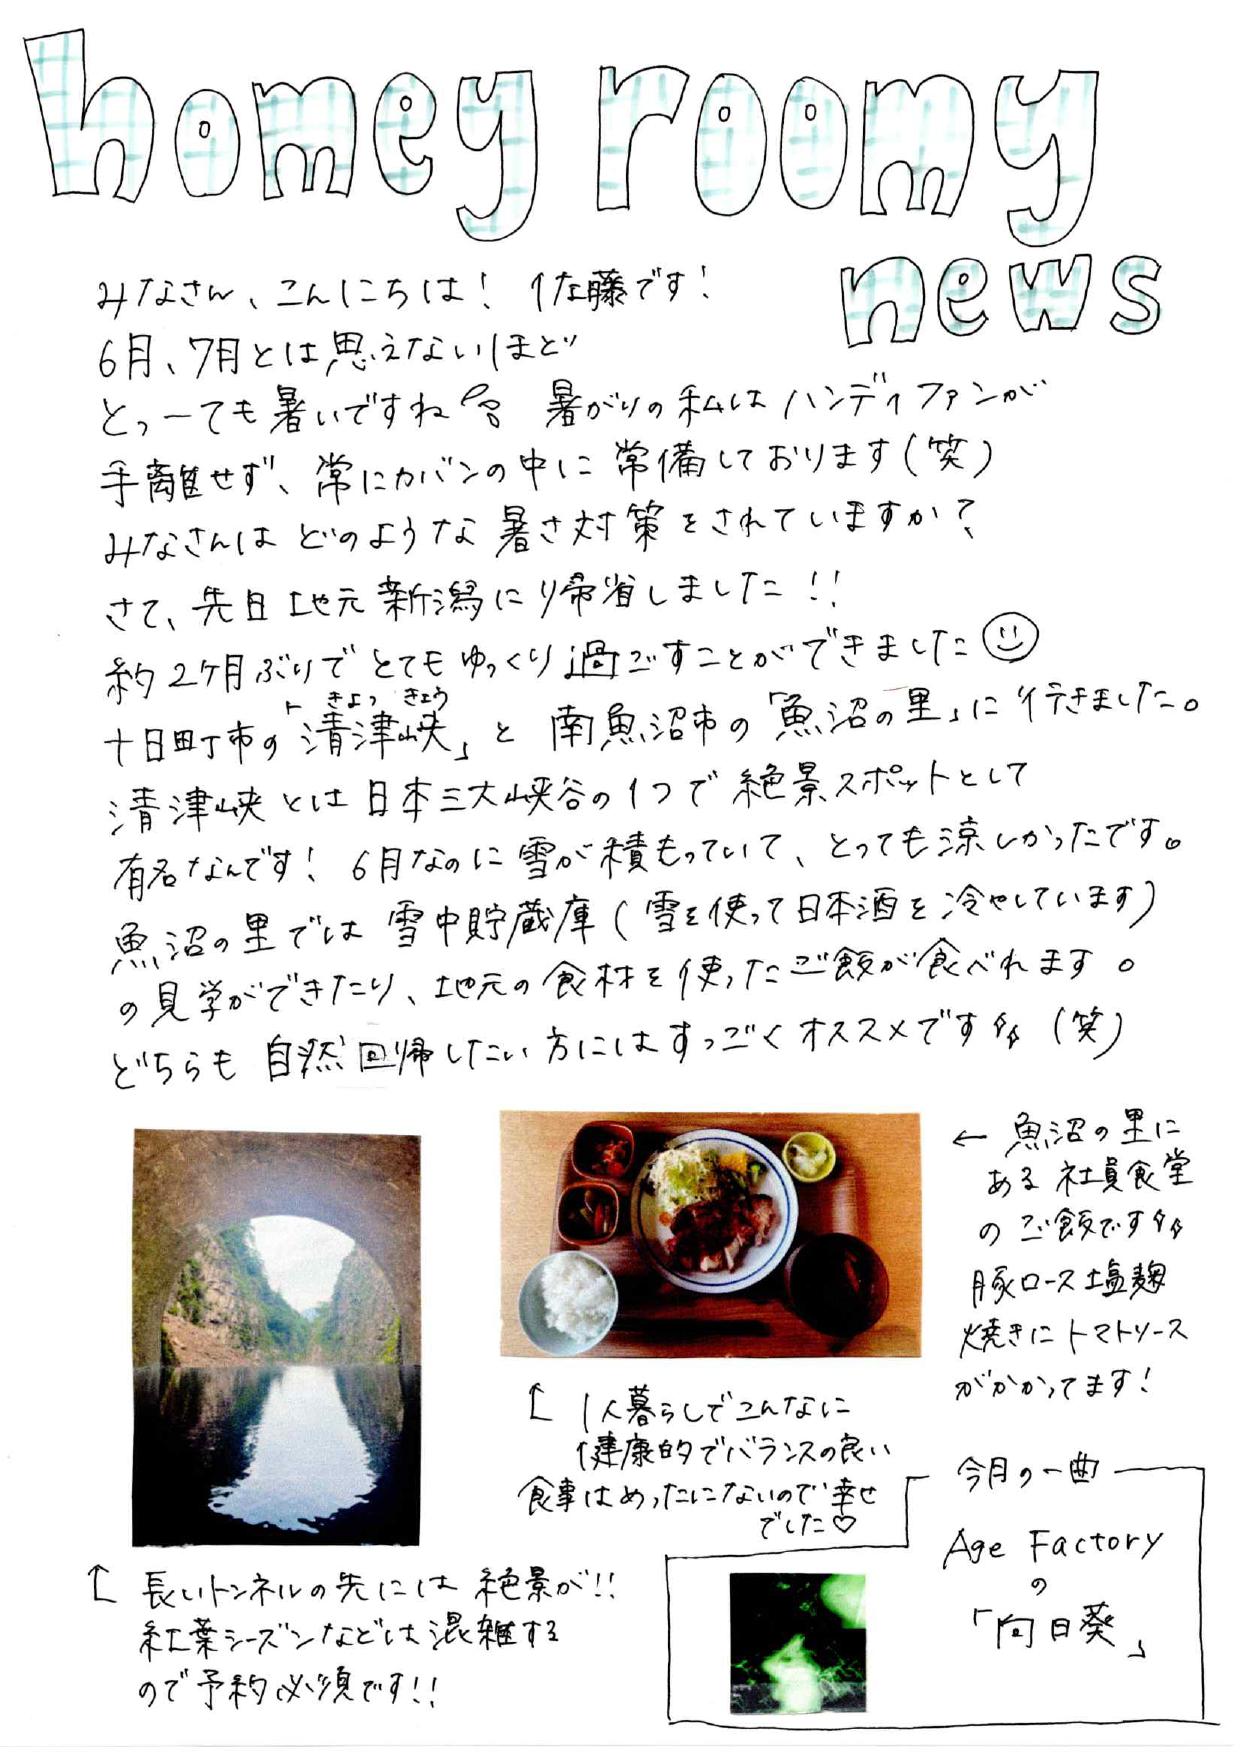 homey roomy
news
みなさん、こんにちは! 佐藤です!
6月、7月とは思えないほど
とっーても暑いですね 暑がりの私はハンディファンが
手離せず、常にカバンの中に常備しております(笑)
みなさんはどのような暑さ対策をされていますか?
さて、先日地元新潟に帰省しました!!
約2ヶ月ぶりでとてもゆっくり過ごすことができました
きよつ きょう
十日町市の「清津峡」と南魚沼市の「魚沼の里」に行きました。
清津峡とは日本三大峡谷の1つで絶景スポットとして
有名なんです! 6月なのに雪が積もっていて、とっても涼しかったです。
魚沼の里では雪中貯蔵庫(雪を使って日本酒を冷やしています)
の見学ができたり、地元の食材を使ったご飯が食べれます。
どちらも自然回帰したい方にはすっごくオススメです(笑)
← 魚沼の里に
ある社員食堂
のご飯です
豚ロース塩麹
焼きにトマトソース
がかかってます!
1人暮らしでこんなに
健康的でバランスの良い
食事はめったにないので幸せ
でした♡
長いトンネルの先には絶景が!!
紅葉シーズンなどは混雑する
ので予約必須です!!
今月の一曲
Age Factory
の
「向日葵」